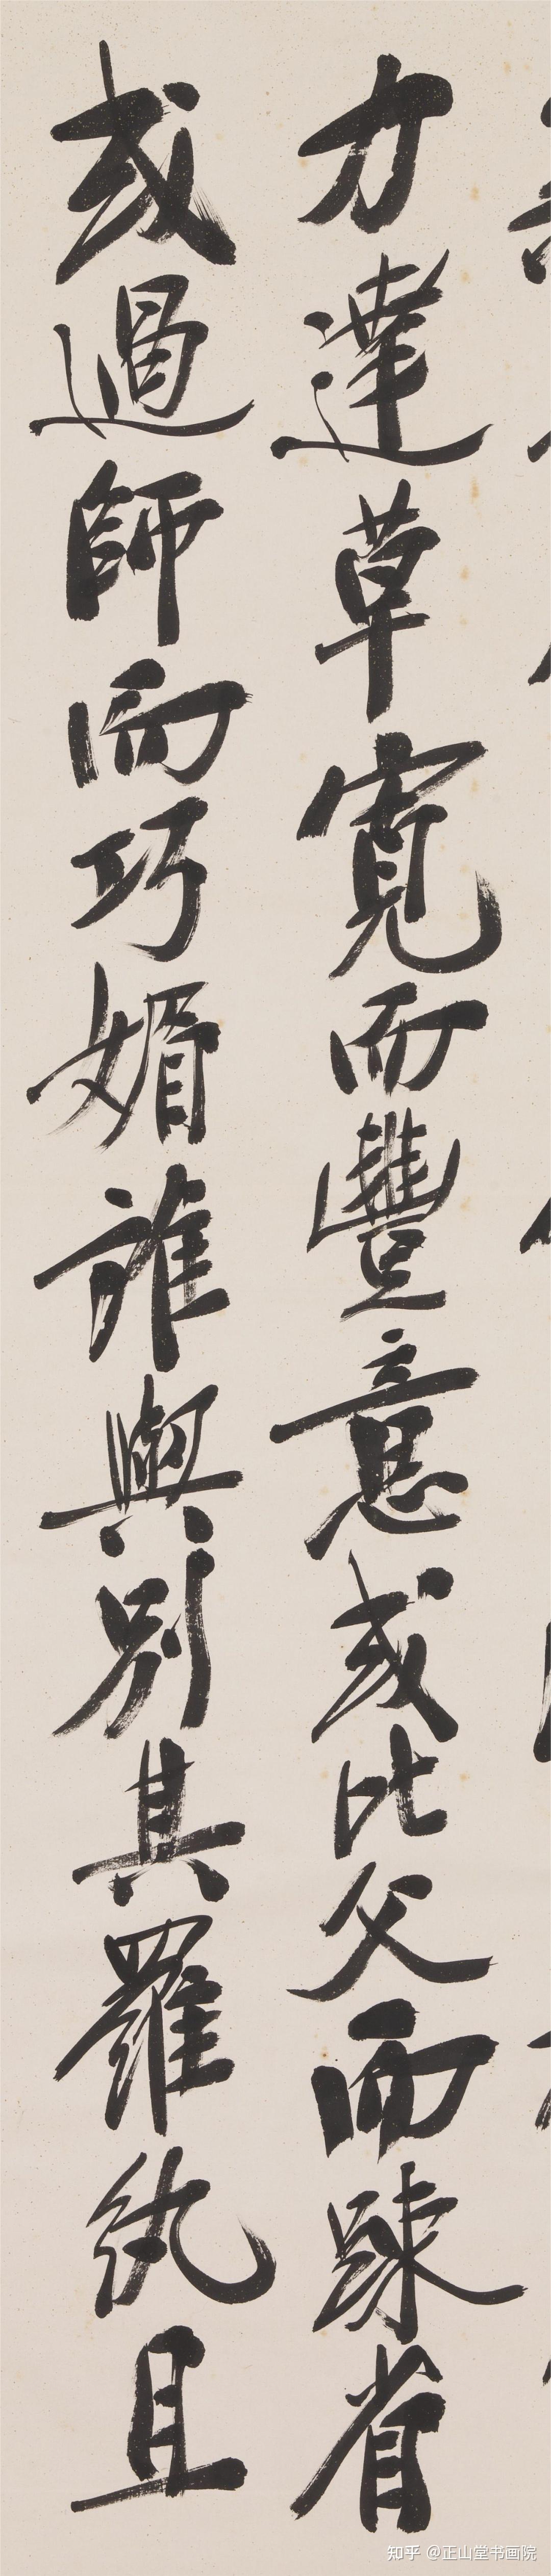 力達草寬而豐意或比父而踈省
或過師而巧媚誰與別其羅紈且
知乎 @正山堂书画院